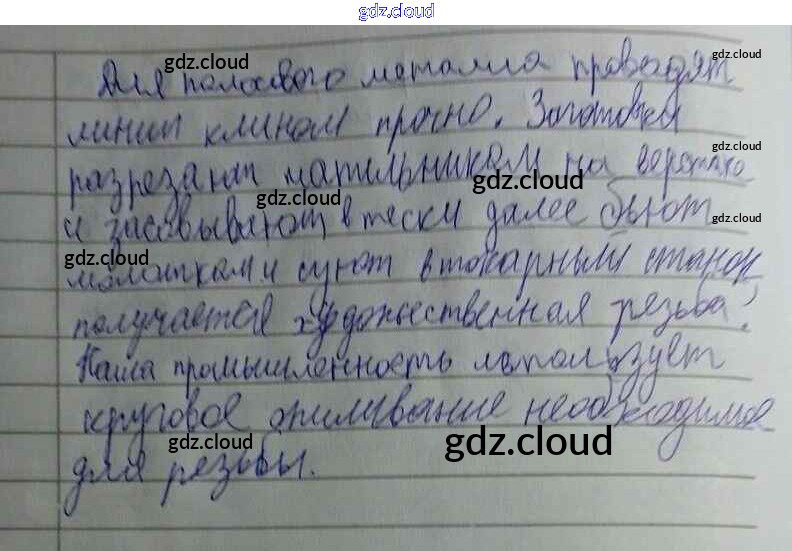 gdz.cloud
gdz.cloud
Для полосового металла проводят
gdz.cloud
линии клином прочно. Заготовки
gdz.cloud
разрезают на верстаке
gdz.cloud
и засовывают в тески далее бьют
gdz.cloud
gdz.cloud
молотками и суют в токарный станок
получается художественная резьба!
Наша промышленность использует
круговое опиливание необходимое
gdz.cloud
gdz.cloud
для резьбы.